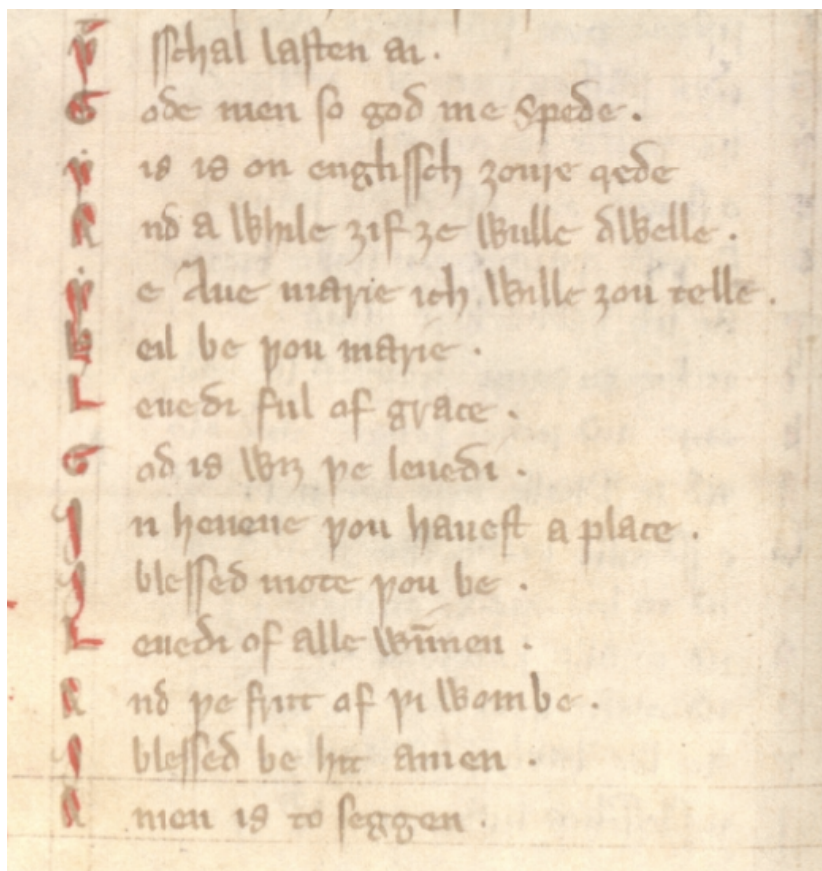 Þ sschal lasten ai.
G ode men so god me spede.
Þ is is on englissch ȝoure crede
A nd a while ȝif ȝe wulle dwelle.
Þ e Aue marie ich wille ȝou telle.
H eil be þou marie.
L euedi ful of grace.
G od is wiȝ þe leuedi.
I n heuene þou hauest a place.
I blessed mote þou be.
L euedi of alle wīmen.
A nd þe frut of þi wombe.
I blessed be hit amen.
A men is to seggen.